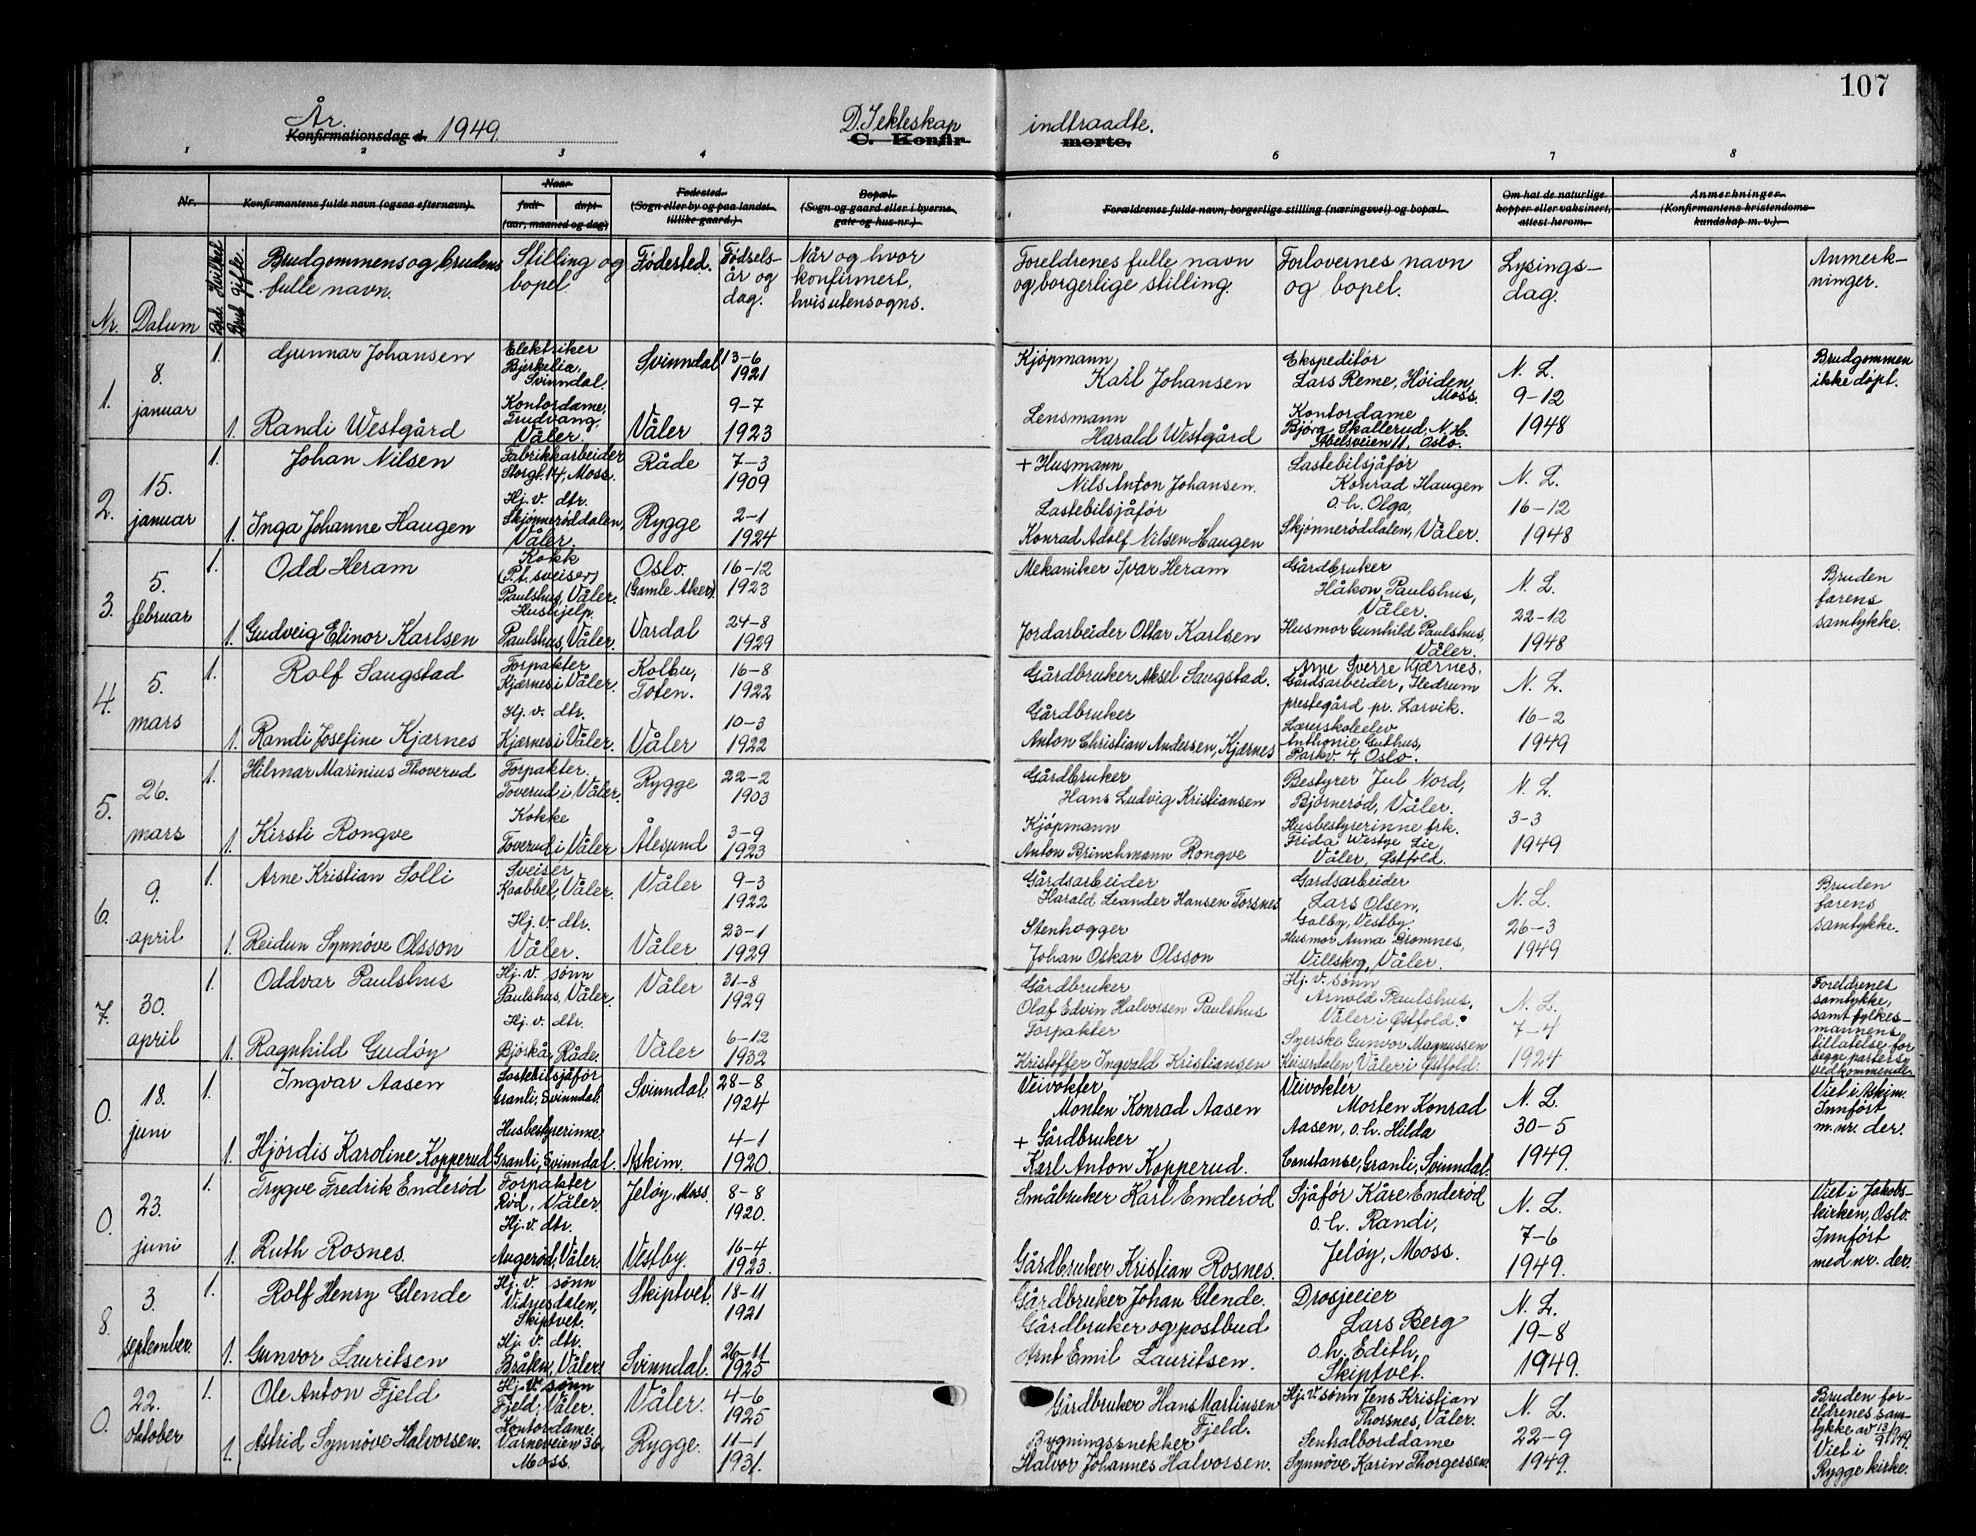 107
År. 1949.
D. I ekteskap indtraadte.
Konfirmationsdag d.
C. Konfir merte.
1 2 3 4 6 7 8
Nr.
Konfirmantens fulde navn (ogsaa efternavn).
Naar
født døpt
(aar, maaned og dag)
Fødested.
(Sogn eller by og paa landet
tillike gaard.)
Bopæl.
(Sogn og gaard eller i byerne
gate og hus-nr.)
Forældrenes fulde navn, borgerlige stilling (næringsvei) og bopæl.
Om hat de naturlige
kopper eller vaksinert,
attest herom.
Anmerkninger
(Konfirmantens kristendoms-
kundskap m. v.).
Nr.
Datum
Brudgommens og brudens
fulle navn.
Stilling og
bopel
Fødested.
Fødsels-
år og
dag.
Når og hvor
konfirmert,
hvis utensogns.
Foreldrenes fulle navn
og borgerlige stilling.
Forlovernes navn
og bopel.
Lysings-
dag.
Anmerk-
ninger.
1.
8.
januar
1.
Gunnar Johansen
Elektriker
Bjerkelia,
Svinndal.
Svinndal
13-6
1921
Kjøpmann
Karl Johansen
Ekspeditør
Lars Reme, Høiden,
Moss.
N. L.
9-12
1948
Brudgommen
ikke døpt.
1.
Randi Westgård
Kontordame,
Trudvang,
Våler.
Våler
9-7
1923
Lensmann
Harald Westgård
Kontordame
Bjørg Skallerud, N. H.
Abelsveien 11, Oslo.
2.
15.
januar
1.
Johan Nilsen
Fabrikkarbeider
Storgt. 14, Moss.
Råde
7-3
1909
+ Husmann
Nils Anton Johansen.
Lastebilsjåfør
Konrad Haugen
o.h. Olga,
Skjønnerøddalen, Våler.
N. L.
16-12
1948
1.
Inga Johanne Haugen
Hj. v. dtr.
Skjønnerøddalen,
Våler.
Rygge
2-1
1924
Lastebilsjåfør
Konrad Adolf Nilsen Haugen
3.
5.
februar
1.
Odd Heram
Kokk
(P.t. sveiser)
Paulshus, Våler.
Oslo.
(Gamle Aker)
16-12
1923
Mekaniker Ivar Heram
Gårdbruker
Håkon Paulshus,
Våler.
N. L.
22-12
1948
Bruden
farens
samtykke.
1.
Gudveig Elinor Karlsen
Hushjelp
Paulshus, Våler.
Vardal
24-8
1929
Jordarbeider Ottar Karlsen
Husmor Gunhild Paulshus,
Våler.
4.
5.
mars
1.
Rolf Saugstad
Forpakter
Kjærnes i Våler.
Kolbu,
Toten.
16-8
1922
Gårdbruker Aksel Saugstad.
Arne Sverre Kjærnes,
Gårdsarbeider, Hedrum
prestegård pr. Larvik.
N. L.
16-2
1949
1.
Randi Josefine Kjærnes
Hj. v. dtr.
Kjærnes i Våler.
Våler
10-3
1922
Gårdbruker
Anton Christian Andersen, Kjærnes
Lærerskoleelev
Anthonie Guthus,
Parkv. 4, Oslo.
5.
26.
mars
1.
Hilmar Marinius Thoverud
Forpakter
Toverud i Våler.
Rygge
22-2
1903
Gårdbruker
Hans Ludvig Kristiansen
Bestyrer Jul Nord,
Bjørnerød, Våler.
N. L.
3-3
1949
1.
Kirsti Rongve
Kokke
Toverud i Våler
Ålesund
3-9
1923
Kjøpmann
Anton Brinchmann Rongve
Husbestyrerinne frk.
Frida Westye Lie,
Våler, Østfold.
6.
9.
april
1.
Arne Kristian Solli
Sveiser
Kaabbel, Våler.
Våler
9-3
1922
Gårdsarbeider
Harald Leander Hansen Torsnes
Gardsarbeider
Lars Olsen,
Golby, Vestby.
N. L.
26-3
1949
Bruden
farens
samtykke.
1.
Reidun Synnøve Olsson
Hj. v. dtr.
Våler.
Våler
23-1
1929
Stenhogger
Johan Oskar Olsson
Husmor Anna Dromnes,
Villskog, Våler.
7.
30.
april
1.
Oddvar Paulshus
Hj. v. sønn
Paulshus, Våler.
Våler
31-8
1929
Gårdbruker
Olaf Edvin Halvorsen Paulshus
Hj. v. sønn
Arnold Paulshus,
Våler i Østfold.
N. L.
7-4
1924
Foreldrenes
samtykke,
samt fylkes-
mannens
tillatelse for
begge parters
vedkommende.
1.
Ragnhild Gudøy
Hj. v. dtr.
Bjørkå, Råde.
Våler
6-12
1932
Forpakter
Kristoffer Ingvald Kristiansen
Syerske Gunvor Magnussen
Keiserdalen, Våler i Østfold.
0.
18.
juni
1.
Ingvar Aasen
Lastebilsjåfør
Granli, Svinndal.
Svinndal.
28-8
1924
Veivokter
Morten Konrad Aasen
Veivokter
Morten Konrad
Aasen, o.h. Hilda
Constanse, Granli, Svinndal.
N. L.
30-5
1949.
Viet i Askim.
Innført
m. nr. der.
1.
Hjørdis Karoline Kopperud
Husbestyrerinne
Granli, Svinndal.
Askim.
4-1
1920.
+ Gårdbruker
Karl Anton Kopperud.
0.
23.
juni
1.
Trygve Fredrik Enderød
Forpakter
Rød, Våler.
Jeløy, Moss.
8-8
1920.
Småbruker Karl Enderød
Sjåfør Kåre Enderød
o.h. Randi,
Jeløy, Moss.
N. L.
7-6
1949.
Viet i Jakobs-
kirken, Oslo.
Innført
med nr. der.
1.
Ruth Rosnes.
Hj. v. dtr.
Augerød, Våler.
Vestby.
16-4
1923.
Gårdbruker Kristian Rosnes.
8.
3.
september.
1.
Rolf Henry Glende
Hj. v. sønn
Vidnesdalen,
Skiptvet.
Skiptvet.
18-11
1921
Gårdbruker Johan Glende.
Drosjeeier
Lars Berg
o.h. Edith,
Skiptvet.
N. L.
19-8
1949.
1.
Gunvor Lauritsen
Hj. v. dtr.
Bråten, Våler.
Svinndal.
26-11
1925
Gårdbruker og postbud
Arnt Emil Lauritsen.
0.
22.
oktober
1.
Ole Anton Fjeld
Hj. v. sønn
Fjeld, Våler.
Våler.
4-6
1925
Gårdbruker Hans Martinsen
Fjeld.
Hj. v. sønn Jens Kristian
Thorsnes, Våler.
N. L.
22-9
1949.
Bruden for-
eldrenes sam-
tykke av 13/9 1949.
Viet i
Rygge kirke.
1.
Astrid Synnøve Halvorsen.
Kontordame.
Varneveien 36,
Moss.
Rygge.
11-1
1931.
Bygningssnekker
Halvor Johannes Halvorsen.
Sentralborddame
Synnøve Karin Thorgersen.